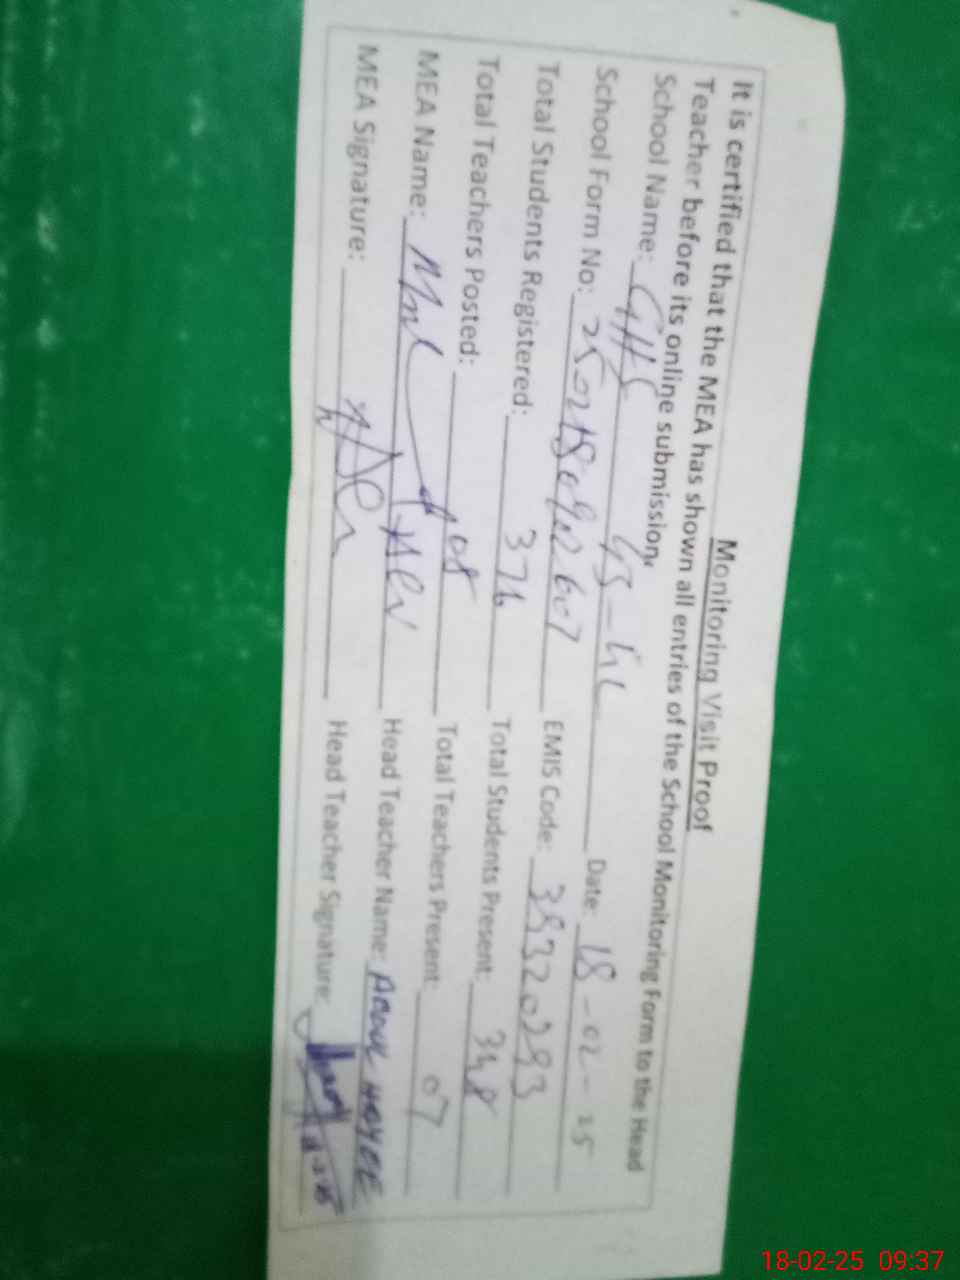 Monitoring Visit Proof
It is certified that the MEA has shown all entries of the School Monitoring Form to the Head
Teacher before its online submission.
School Name: GHS Date: 18-02-25
School Form No: EMIS Code: 38320293
Total Students Registered: 376 Total Students Present: 348
Total Teachers Posted: 08 Total Teachers Present: 07
MEA Name: Head Teacher Name:
MEA Signature: Head Teacher Signature:
18-02-25 09:37